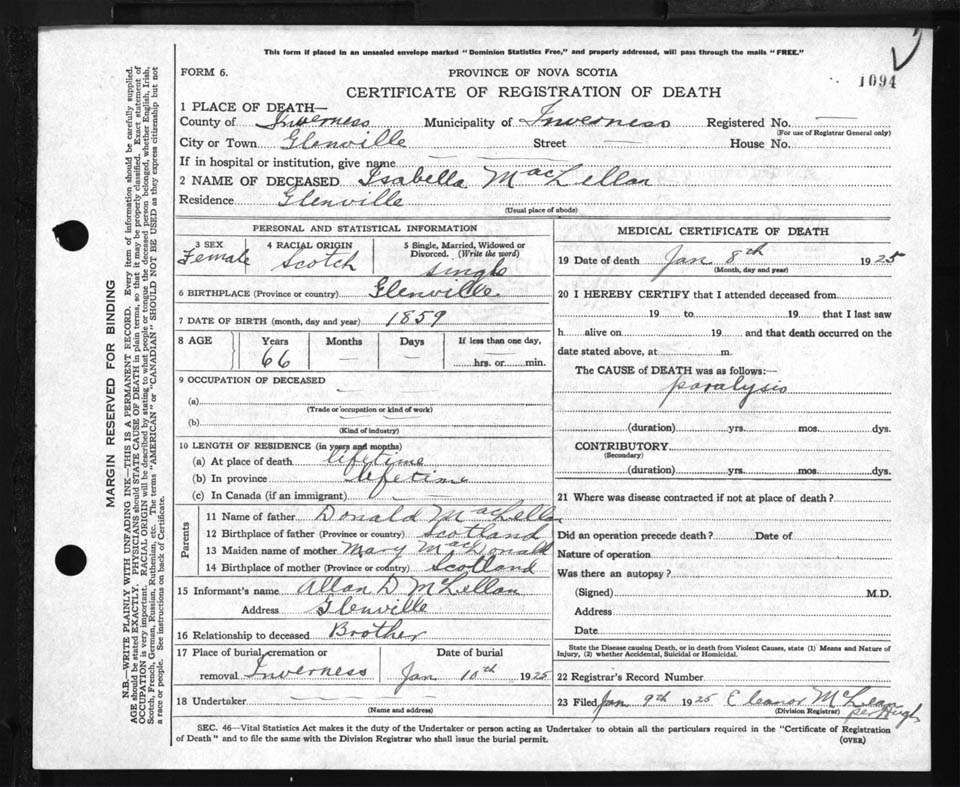 This form if placed in an unsealed envelope marked "Dominion Statistics Free," and properly addressed, will pass through the mails "FREE."
FORM 6.
PROVINCE OF NOVA SCOTIA
1094
CERTIFICATE OF REGISTRATION OF DEATH
1 PLACE OF DEATH—
County of Inverness Municipality of Inverness Registered No.
(For use of Registrar General only)
City or Town Glenville Street House No.
If in hospital or institution, give name
2 NAME OF DECEASED Isabella MacLellan
Residence Glenville
(Usual place of abode)
PERSONAL AND STATISTICAL INFORMATION
3 SEX 4 RACIAL ORIGIN 5 Single, Married, Widowed or Divorced. (Write the word)
Female Scotch Single
6 BIRTHPLACE (Province or country) Glenville
7 DATE OF BIRTH (month, day and year) 1859
8 AGE Years Months Days If less than one day,
66 — — hrs. or min.
9 OCCUPATION OF DECEASED
(a)
(Trade or occupation or kind of work)
(b)
(Kind of industry)
10 LENGTH OF RESIDENCE (in years and months)
(a) At place of death lifetime
(b) In province lifetime
(c) In Canada (if an immigrant)
Parents
11 Name of father Donald MacLellan
12 Birthplace of father (Province or country) Scotland
13 Maiden name of mother Mary MacDonald
14 Birthplace of mother (Province or country) Scotland
15 Informant's name Allan D McLellan
Address Glenville
16 Relationship to deceased Brother
17 Place of burial, cremation or Date of burial
removal Inverness Jan 10th 1925
18 Undertaker
(Name and address)
MEDICAL CERTIFICATE OF DEATH
19 Date of death Jan 8th 1925
(Month, day and year)
20 I HEREBY CERTIFY that I attended deceased from
19 to 19 that I last saw
h alive on 19 and that death occurred on the
date stated above, at m.
The CAUSE of DEATH was as follows:—
paralysis
(duration) yrs. mos. dys.
CONTRIBUTORY
(Secondary)
(duration) yrs. mos. dys.
21 Where was disease contracted if not at place of death?
Did an operation precede death? Date of
Nature of operation
Was there an autopsy?
(Signed) M.D.
Address
Date
State the Disease causing Death, or in death from Violent Causes, state (1) Means and Nature of
Injury, (2) whether Accidental, Suicidal or Homicidal.
22 Registrar's Record Number
23 Filed Jan 9th 1925 Eleanor McLean
(Division Registrar) per Hugh
SEC. 46—Vital Statistics Act makes it the duty of the Undertaker or person acting as Undertaker to obtain all the particulars required in the "Certificate of Registration
of Death" and to file the same with the Division Registrar who shall issue the burial permit. (OVER)
MARGIN RESERVED FOR BINDING
N.B.—WRITE PLAINLY WITH UNFADING INK—THIS IS A PERMANENT RECORD. Every item of information should be carefully supplied.
AGE should be stated EXACTLY. PHYSICIANS should STATE CAUSE OF DEATH in plain terms, so that it may be properly classified. Exact statement of
OCCUPATION is very important. RACIAL ORIGIN will be described by stating to what people or tongue the deceased person belonged, whether English, Irish,
Scotch, French, German, Russian, Ruthenian, etc. The terms "AMERICAN" or "CANADIAN" SHOULD NOT BE USED as they express citizenship but not
a race or people. See instructions on back of Certificate.